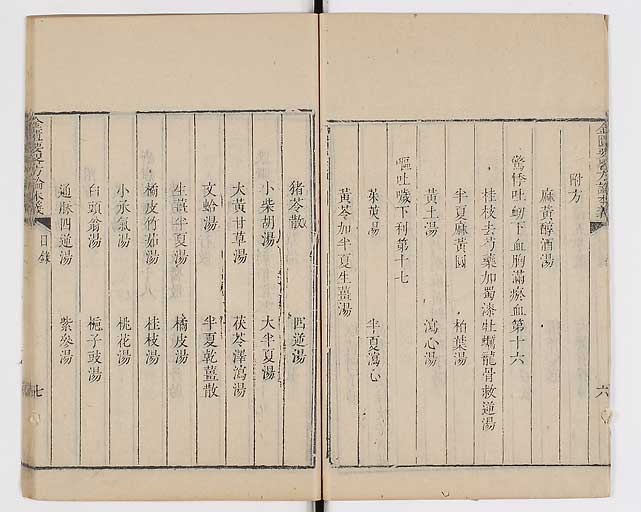 附方
麻黃醇酒湯
驚悸吐衂下血胸滿瘀血第十六
桂枝去芍藥加蜀漆牡蠣龍骨救逆湯
半夏麻黃圓 柏葉湯
黃土湯 瀉心湯
嘔吐噦下利第十七
茱萸湯 半夏瀉心
黃芩加半夏生薑湯
六
猪苓散 四逆湯
小柴胡湯 大半夏湯
大黃甘草湯 茯苓澤瀉湯
文蛤湯 半夏乾薑散
生薑半夏湯 橘皮湯
橘皮竹茹湯 桂枝湯
小承氣湯 桃花湯
白頭翁湯 梔子豉湯
通脉四逆湯 紫參湯
金匱要畧方論本義 目錄 七